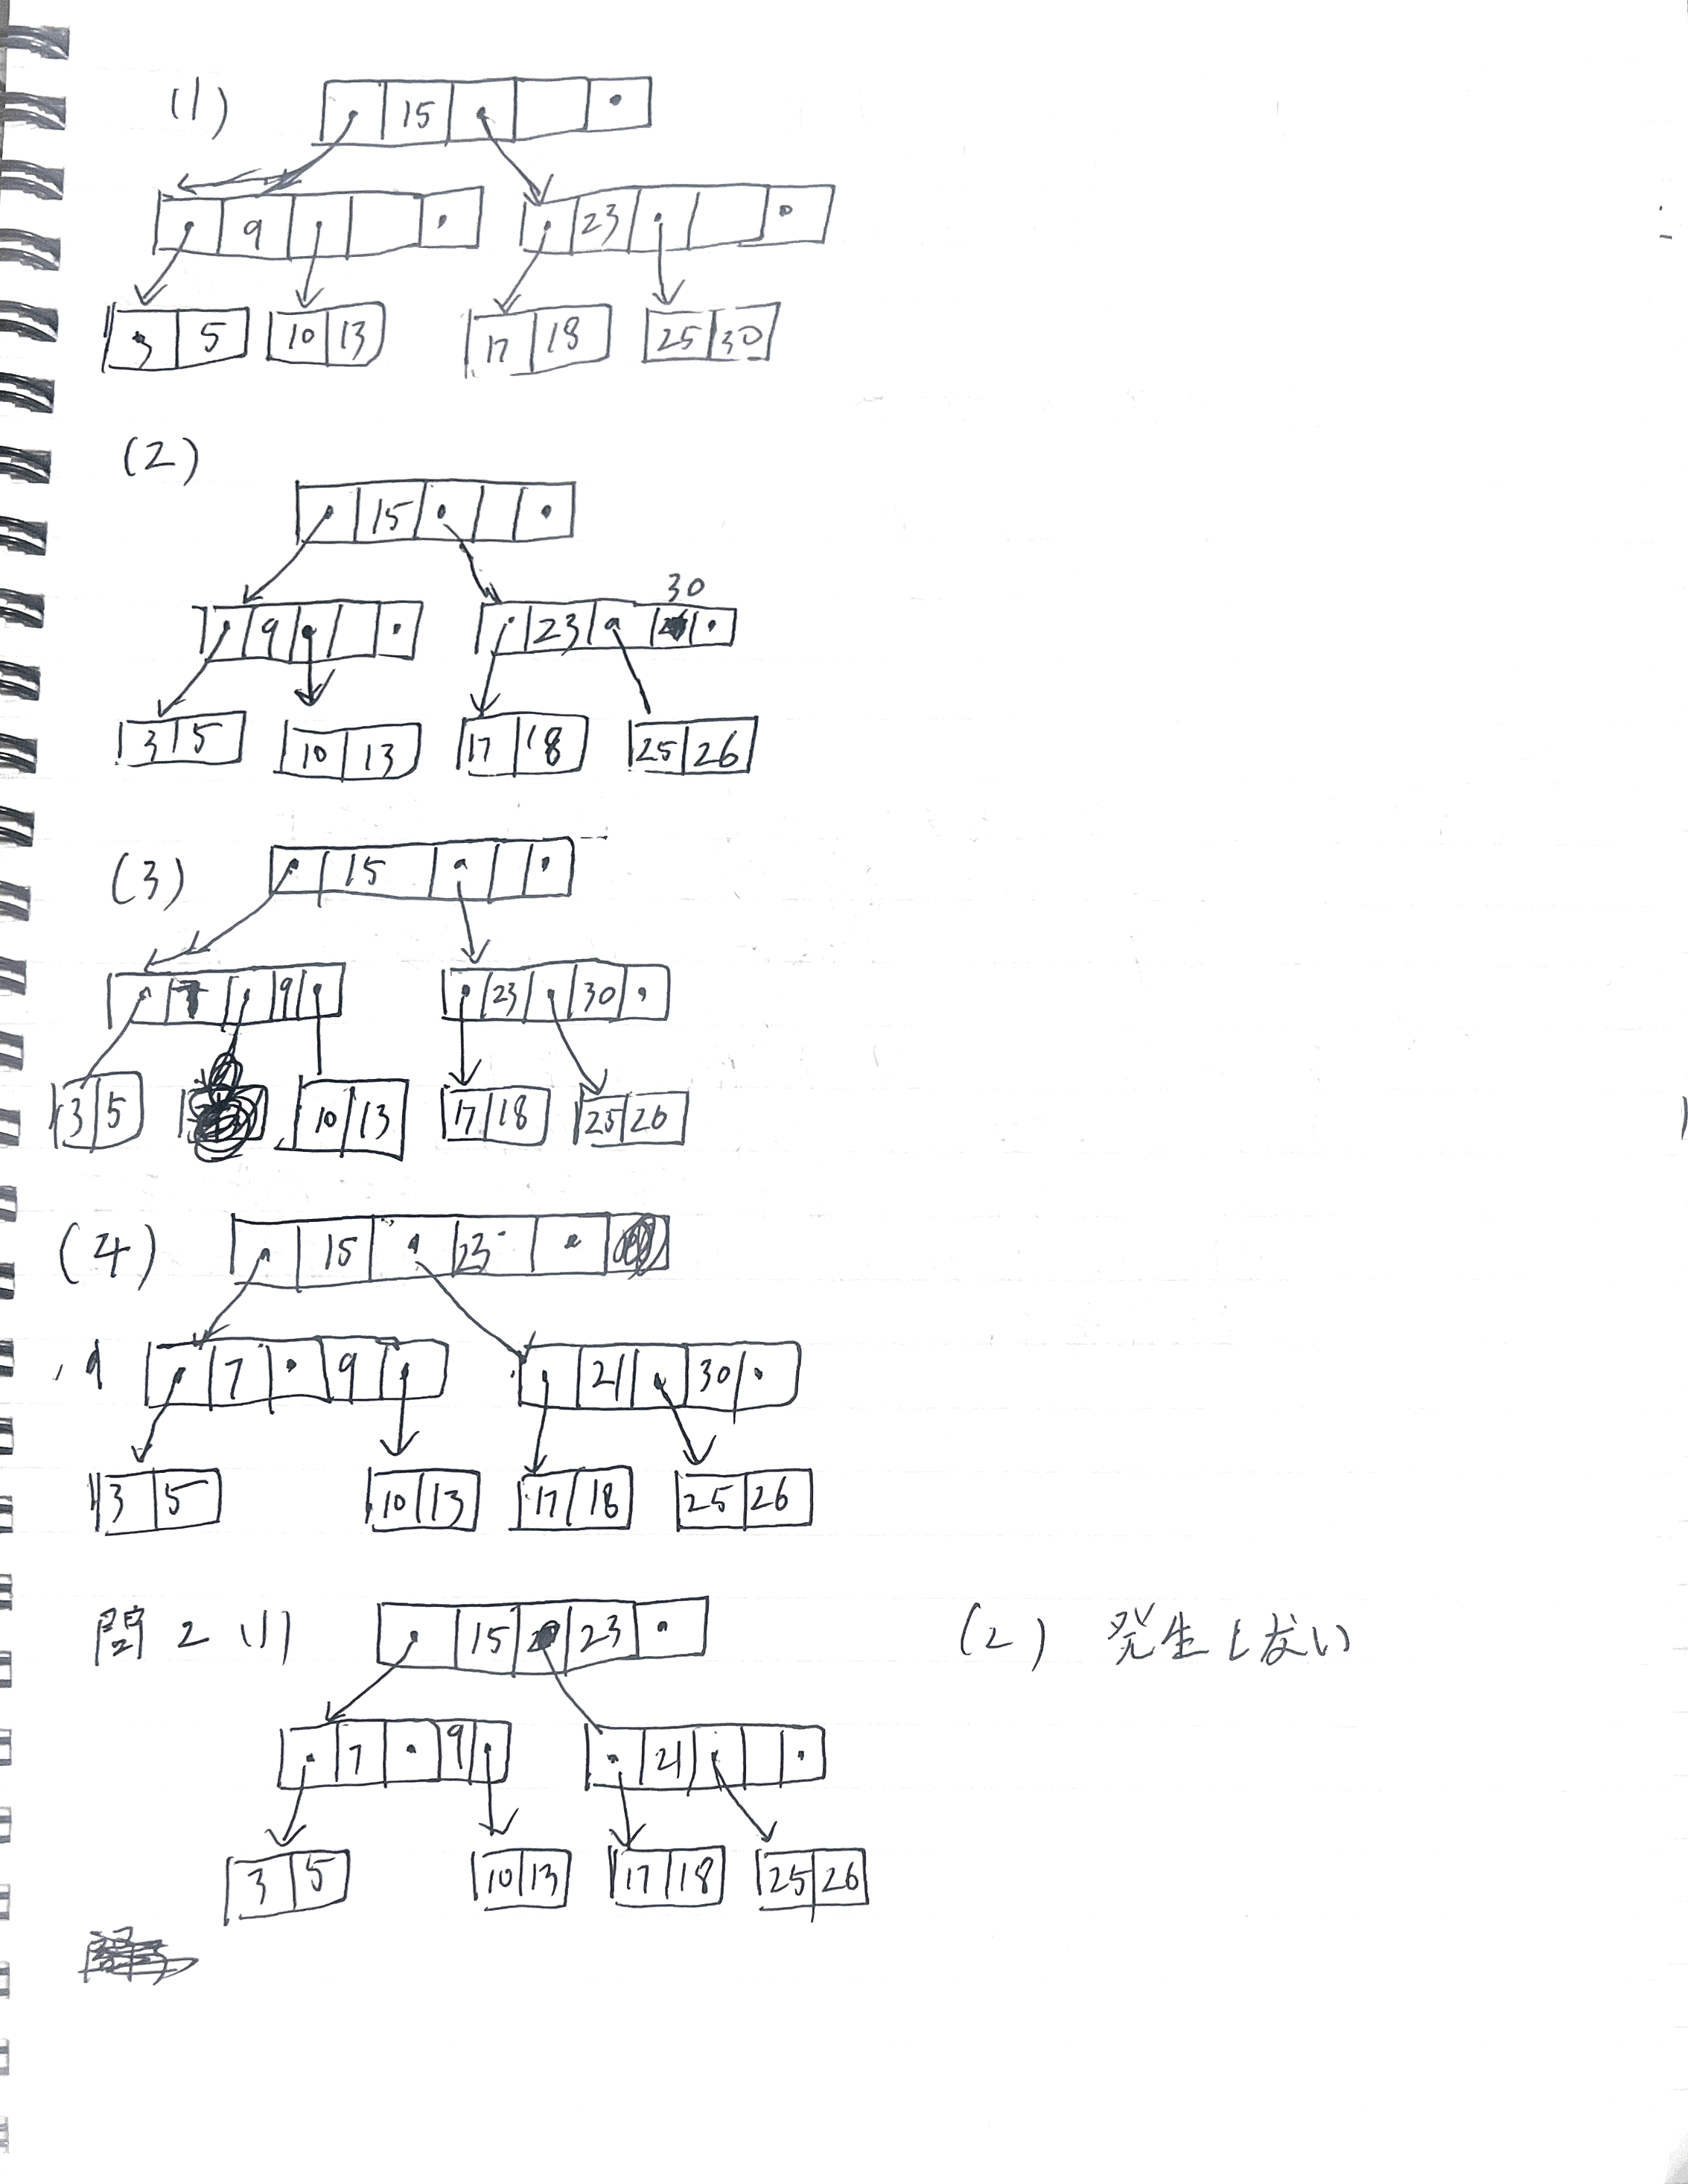 (1) 15
9 23
3 5 10 13 17 18 25 30
(2)
15
30
9 23
3 5 10 13 17 18 25 26
(3) 15
7 9 23 30
3 5 10 13 17 18 25 26
(4) 15 23
7 9 21 30
3 5 10 13 17 18 25 26
問2 (1) 15 23 (2) 発生しない
7 9 21
3 5 10 13 17 18 25 26